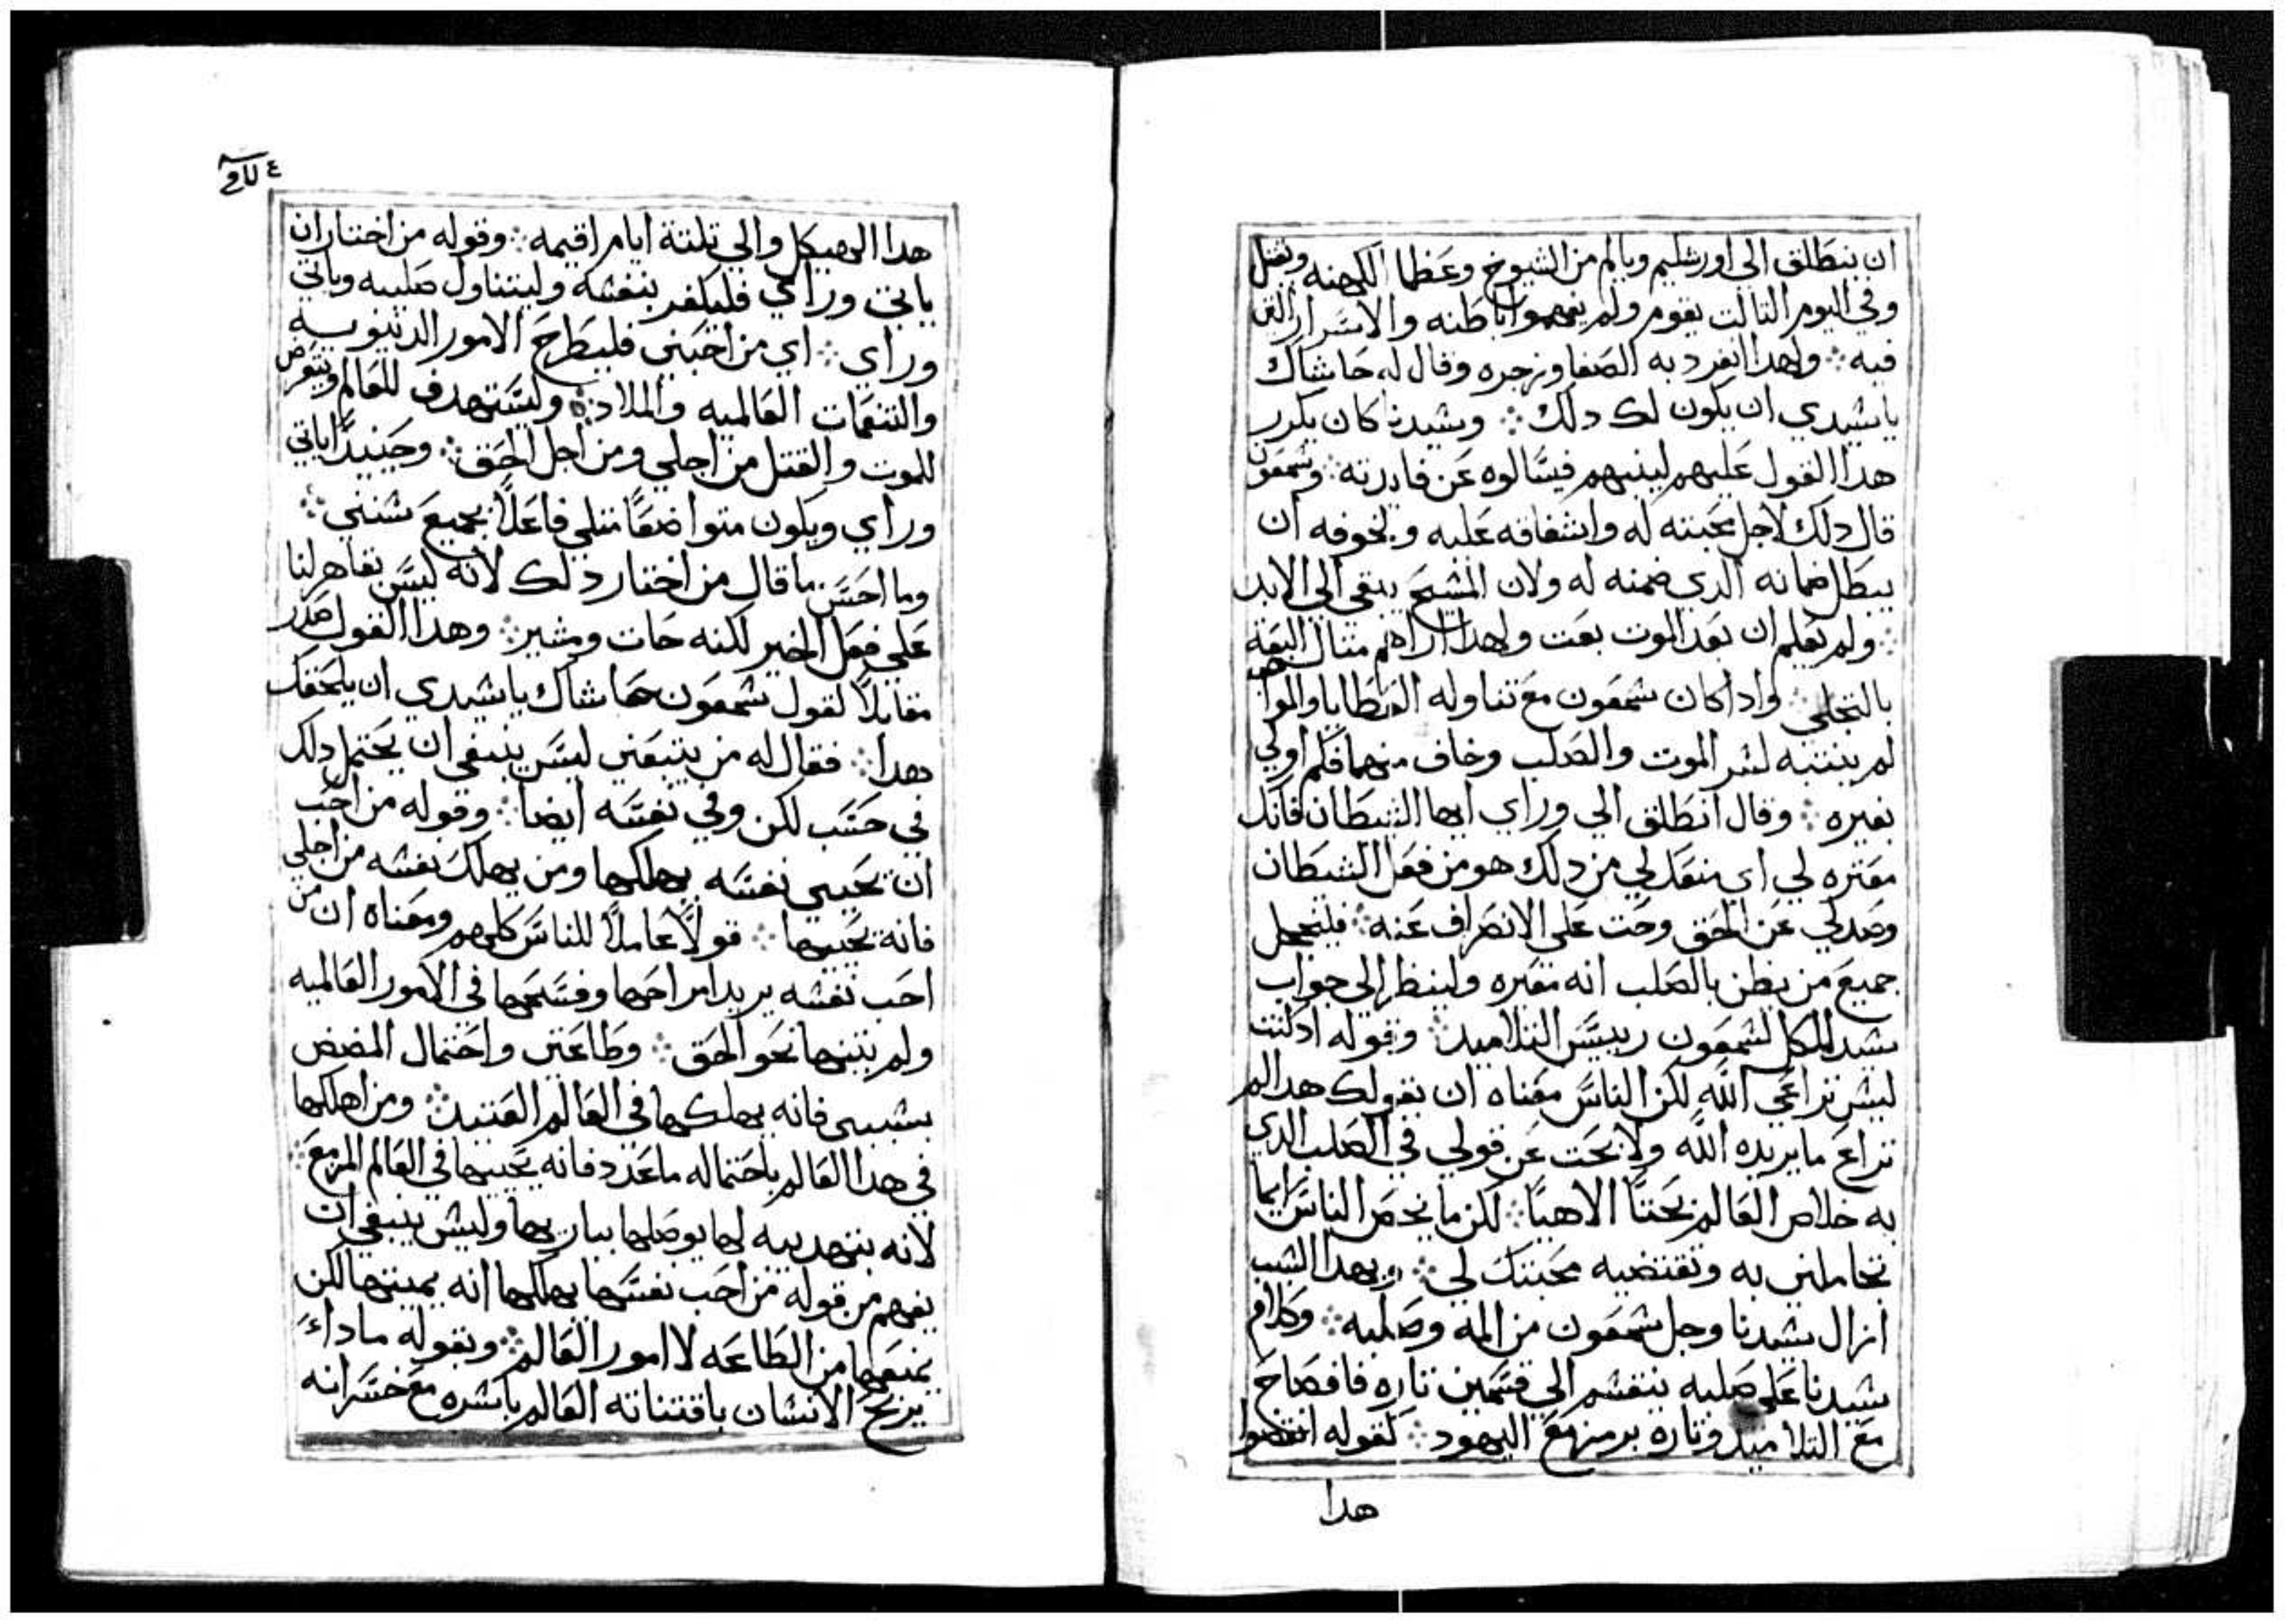 ان ينطلق الي اورشليم ويالم من الشيوخ وعظما الكهنه ويقتل
وفي اليوم التالت يقوم ولم يفهموا باطنه والاسرار التي
فيه ∴ ولهدا انفرد به الصفا وزجره وقال له حاشاك
ياسيدي ان يكون لك دلك ∴ وسيدنا كان يكرر
هدا القول عليهم لينبهم فيسالوه عن فايدته ∴ وشمعون
قال دلك لاجل محبته له واشفاقه عليه ولخوفه ان
يبطل ضمانه الدي ضمنه له ولان المسيح يبقي الي الابد
∴ ولم يعلم ان بعد الموت بعت ولهدا اراهم متال البعت
بالتجلي ∴ وادا كان شمعون مع تناوله العطايا والمواهب
لم ينتبه لسر الموت والصلب وخاف منهما فكم اولي
بغيره ∴ وقال انطلق الي وراي ايها الشيطان فانك
معتره لي اي منعك لي من دلك هو من فعل الشيطان
وصد لي عن الحق وحت علي الانصراف عنه ∴ فليخجل
جميع من يظن بالصلب انه معتره ولينظر الي جواب
سيد الكل لشمعون رييس التلاميد ∴ وقوله اد لست
ليس تراعي الله لكن الناس معناه ان بقولك هدا لم
تراع ما يريده الله ولا بحت عن قولي في الصلب الدي
به خلاص العالم بحتًا الاهيًا ∴ لكن ما يخص الناس انما
تخاملني به وتقتضيه محبتك لي ∴ وبهدا السبب
ازال سيدنا وجل شمعون من المه وصلبه ∴ وكلام
سيدنا علي صلبه ينقسم الي قسمين تاره فافصاح
مع التلاميد وتاره برمز مع اليهود ∴ كقوله انقضوا
هدا
هدا الهيكل والي تلتة ايام اقيمه ∴ وقوله من اختار ان
ياتي وراي فليكفر بنفسه وليتناول صليبه وياتي
وراي ∴ اي من احبني فليطرح الامور الدنيويه
والتنعمات العالميه والملاد ∴ وليستهدف للعالم ويتعرض
للموت والقتل من اجلي ومن اجل الحق ∴ وحينيدًا ياتي
وراي ويكون متواضعًا متلي فاعلًا بجميع سنني ∴
وما احسن ما قال من اختار دلك لانه ليس بقاهر لنا
علي فعل الخير لكنه حات ومشير ∴ وهدا القول صدر
مقابلًا لقول شمعون حاشاك ياسيدي ان يلحقك
هدا ∴ فقال له من يتبعني ليس ينبغي ان يحتمل دلك
في حسب لكن وفي نفسه ايضا ∴ وقوله من احب
ان يحيي نفسه يهلكها ومن يهلك نفسه من اجلي
فانه يحييها ∴ قولًا عاملًا للناس كلهم ومعناه ان من
احب نفسه يريد امراحها وفسحها في الامور العالميه
ولم يتبنها نحو الحق ∴ وطاعتي واحتمال المضض
بسببي فانه يهلكها في العالم العتيد ∴ ومن اهلكها
في هدا العالم باحتماله ما عدد فانه يحييها في العالم المزمع ∴
لانه بتهديبه لها يوصلها بباريها وليس ينبغي ان
يفهم من قوله من احب نفسها يهلكها انه يميتها لكن
يمنعها من الطاعه لا امور العالم ∴ وبقوله مادا
يربح الانسان باقتناته العالم باسره مع خسرانه